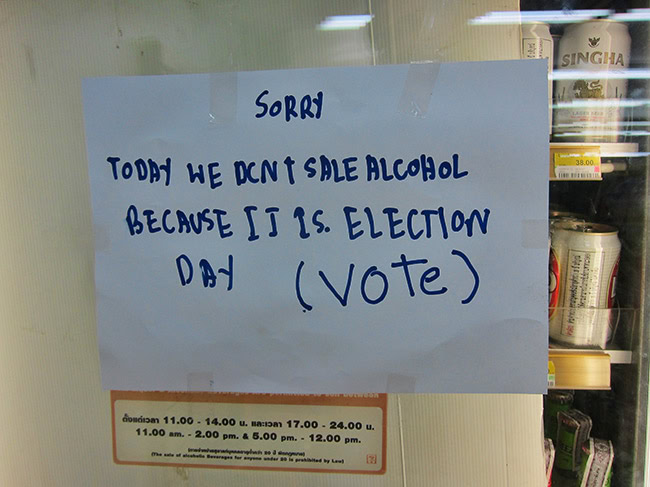 SORRY
TODAY WE DON'T SALE ALCOHOL
BECAUSE IT IS. ELECTION
DAY (VOTE)
SINGHA
38.00
ตั้งแต่เวลา 11.00 - 14.00 น. และเวลา 17.00 - 24.00 น.
11.00 am. - 2.00 pm. & 5.00 pm. - 12.00 pm.
(The sale of alcoholic Beverages for anyone under 20 is prohibited by Law)